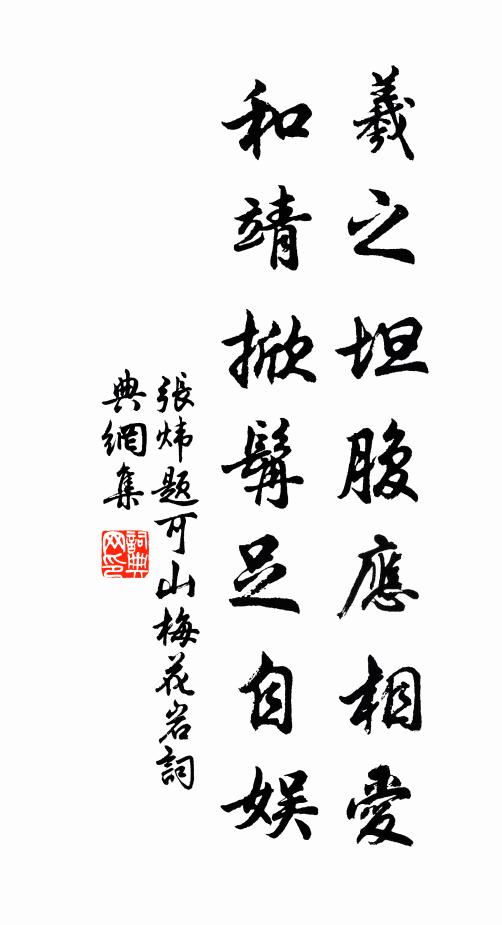 羲之坦腹應相愛
和靖掀髯足自娛
張煒題可山梅花岩詞
典網集
詞典
网印